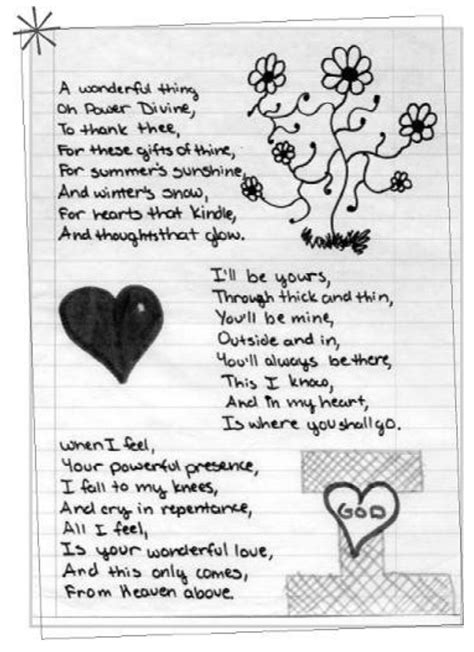 A wonderful thing
Oh Power Divine,
To thank thee,
For these gifts of thine,
For summer's sunshine,
And winter's snow,
For hearts that kindle,
And thoughts that glow.
I'll be yours,
Through thick and thin,
You'll be mine,
Outside and in,
You'll always be there,
This I know,
And in my heart,
Is where you shall go.
When I feel,
Your powerful presence,
I fall to my knees,
And cry in repentance,
All I feel,
Is your wonderful love,
And this only comes,
From Heaven above.
GOD